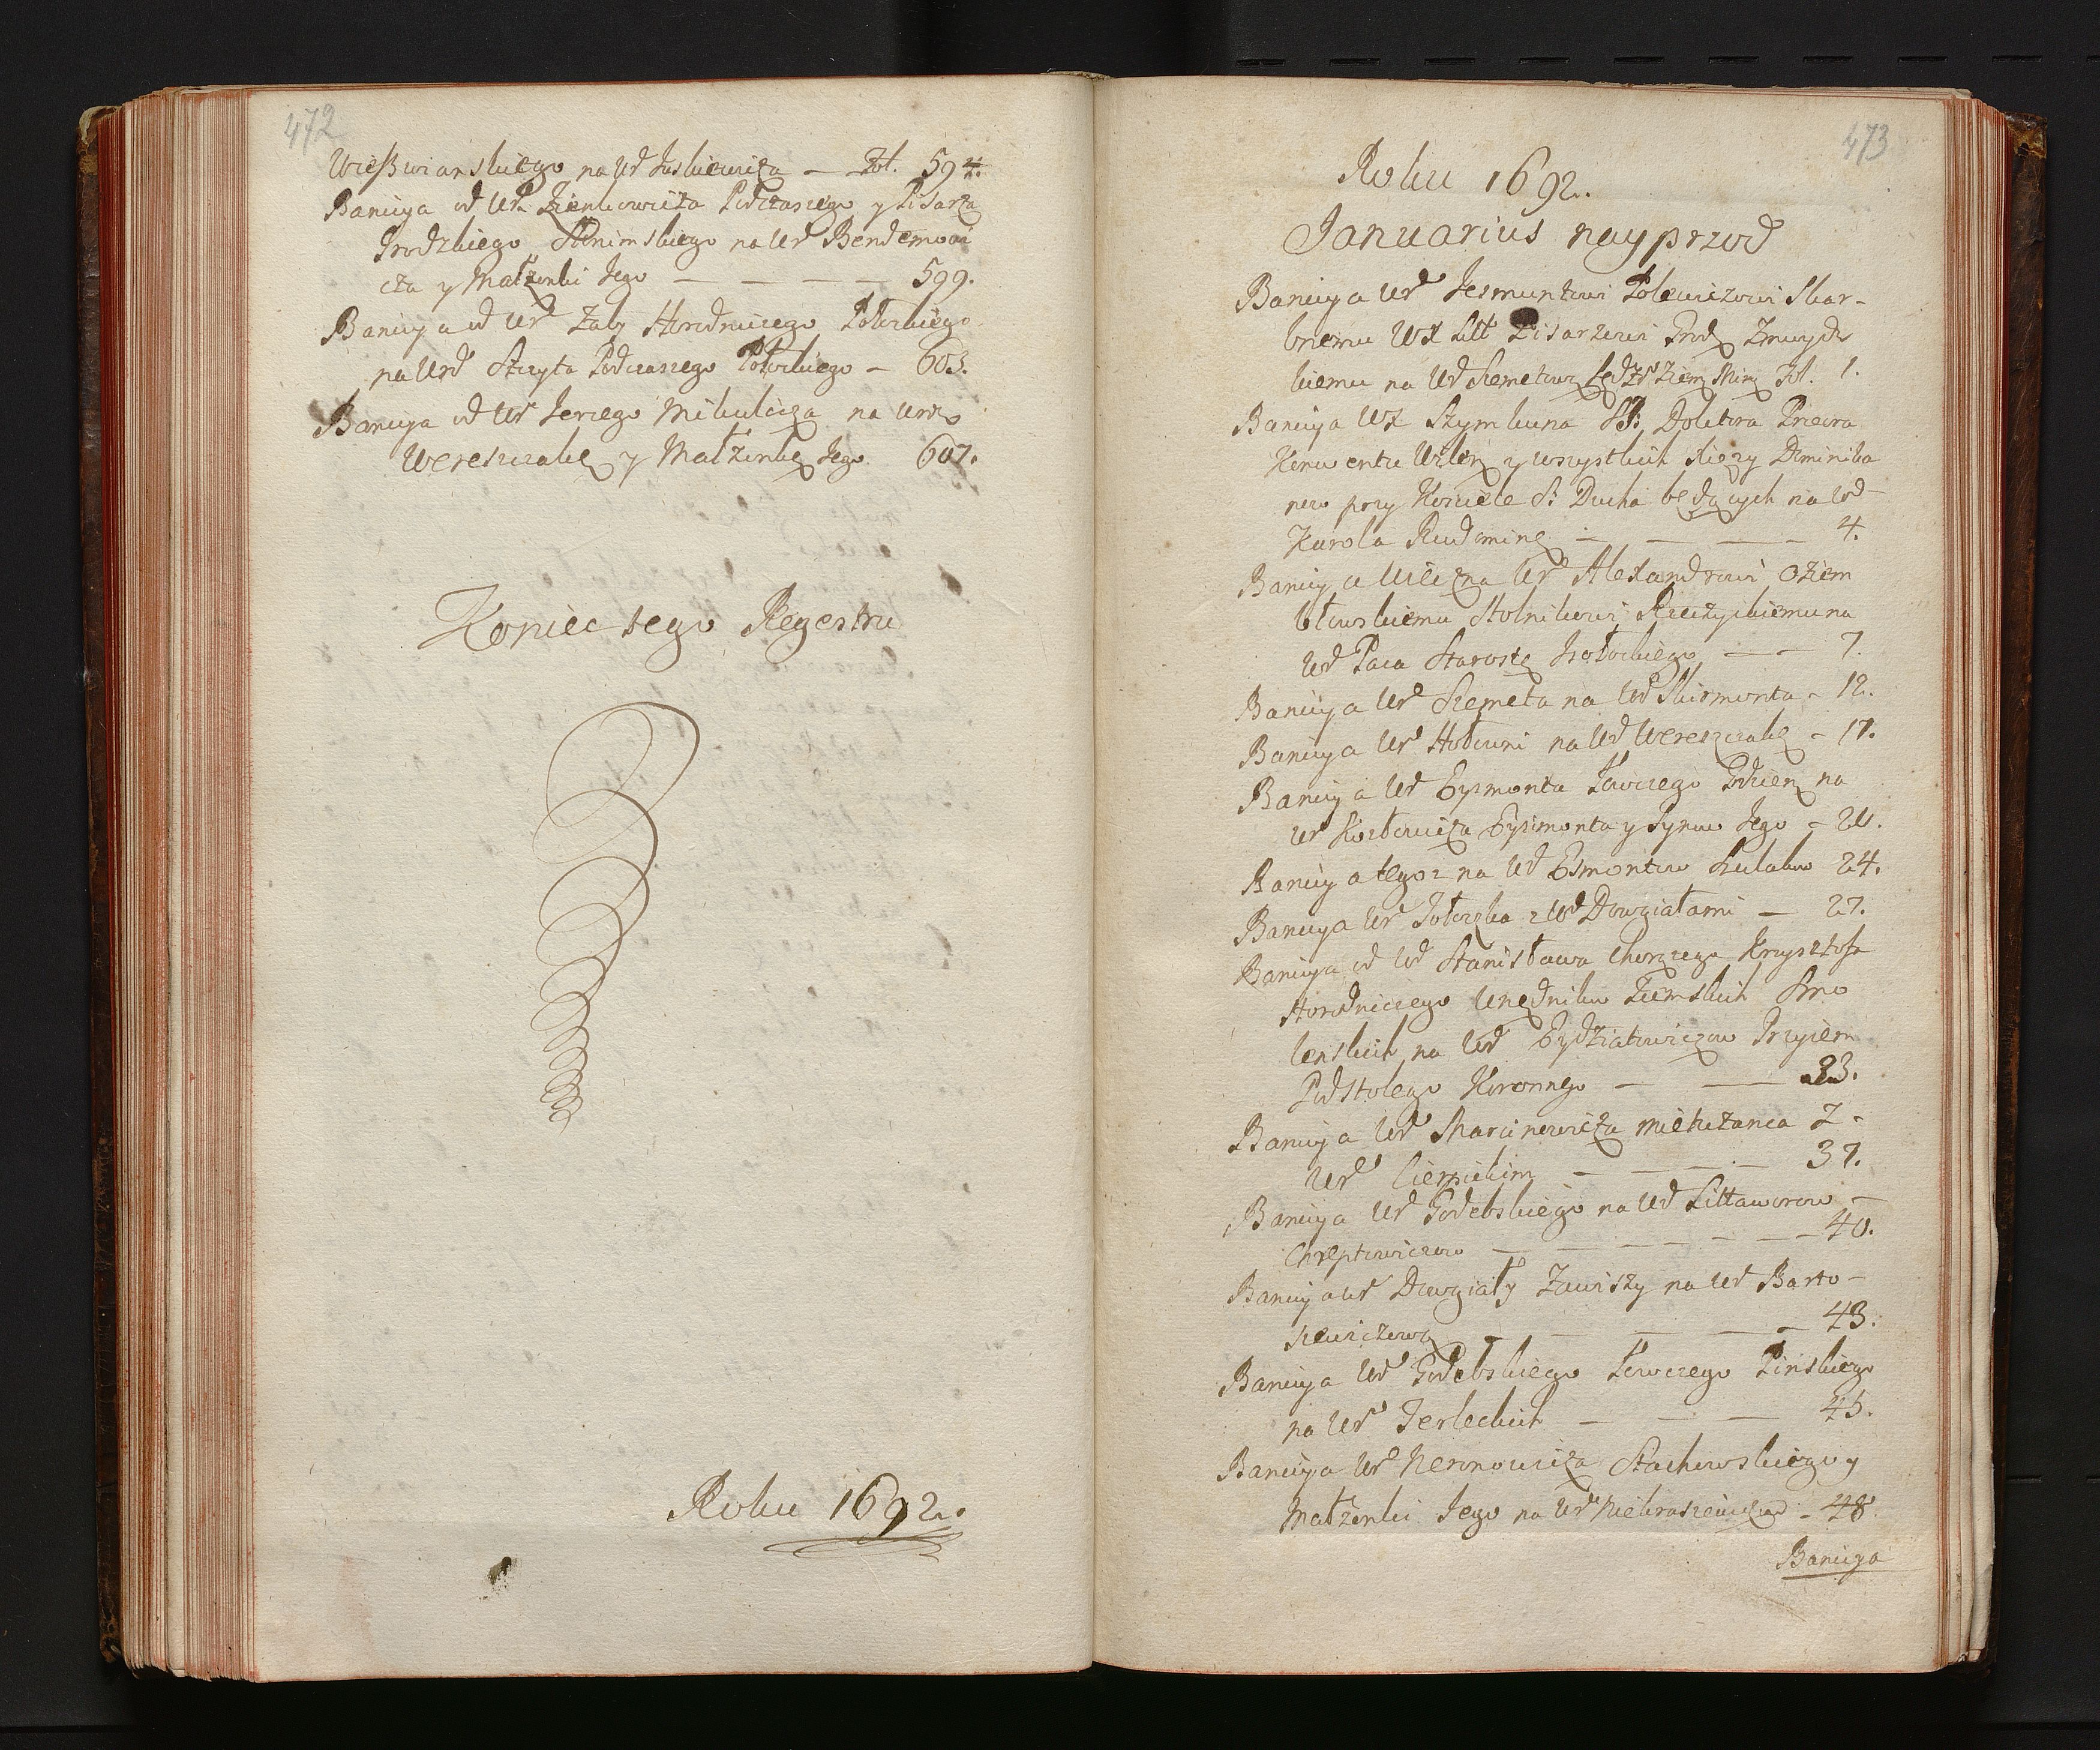 472
Wießwianskiego na Ur Juskiewicza — Fol. 594.
Banicya od Ur Zienkowicza Podczaszego y Pisarza
Grodzkiego Słonimskiego na Ur Bendemowi
cza y Małżonki Jego — — — — 599.
Banicya od Ur Zaby Horodniczego Połockiego
na Urd Sczyta Podczaszego Połockiego — 603.
Banicya od Ur Jerzego Mikulicza na Urr
Wereszczakę y Małżonkę Jego 607.
Koniec tego Regestru
Roku 1692.
473
Roku 1692.
Januarius nayprzod
Banicya Ur Jesmuntowi Polewiczowi Skar-
bnemu WX Litt Pisarzewi Grodz Zmuydz
kiemu na Ur Szemetow Sędz Ziem Fol. 1.
Banicya WX Szymkuna ST: Doktora Przeora
Konwentu Wilen y wszystkich Xięzy Dominika
now przy Kosciele S: Ducha będących na Ur
Karola Rudominę — — — — 4.
Banicya wieczna Ur Alexandrowi Oziem
błowskiemu Stolnikowi Rzeczyckiemu na
Ur Paca Starostę — — 7.
Banicya Ur Szemeta na Ur Skirmonta - 12.
Banicya Ur Hołowni na Ur Wereszczakę - 17.
Banicya Ur Eysmonta Łowczego Grodzien na
Ur Kozłowicza Eysimonta y Synow Jego - 20.
Banicya tegoz na Ur Esmontow Szulakow 24.
Banicya Ur z Ur Dowgiałami — 27.
Banicya od Ur Stanisława Chorązego Krysztofa
Horodniczego Urzędnikow Ziemskich Smo
lenskich na Ur Eydziatowiczow Przyiem
Podstolego Koronnego — — 33.
Banicya Ur Marcinowicza mieszczanca Z -
Ur Cierpickim — — — — 37.
Banicya Ur Godebskiego na Ur Littaworow —
Chreptowiczow — — — — — — 40.
Banicya Ur Dowgiały Zawiszy na Ur Barto-
szewiczową — — — — 43.
Banicya Ur Godebskiego Łowczego Pinskiego
na Ur Terleckich — — — 45.
Banicya Ur Neronowicza Stachowskiego y
Małżonki Jego na Ur Niekraszewiczow - 48.
Banicya